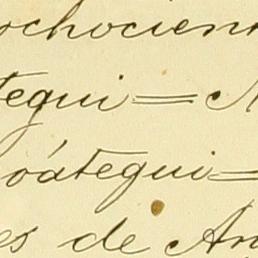 ochocien
tegui=
oátegui=
es de An